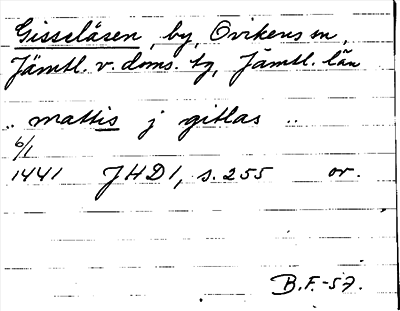 Gisselåsen, by, Ovikens sn,
Jämtl. v. doms. tg, Jämtl. län
.. mattis j gitlas ..
6/1
1441 JHD 1, s. 255 or.
B.F.-57.